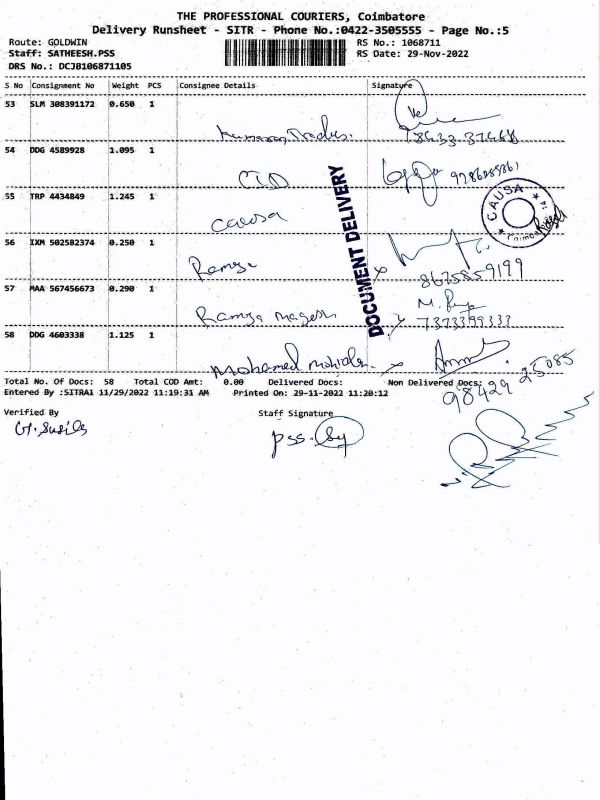 THE PROFESSIONAL COURIERS, Coimbatore
Delivery Runsheet - SITR - Phone No.:0422-3505555 - Page No.:5
Route: GOLDWIN
RS No.: 1068711
Staff: SATHEESH.PSS
RS Date: 29-Nov-2022
DRS No.: DCJB106871105
S No Consignment No Weight PCS Consignee Details Signature
53 SLM 308391172 0.650 1
78433-37468
54 DDG 4589928 1.095 1
CTD
55 TRP 4434849 1.245 1
causa
CAUSA
56 IXM 502582374 0.250 1
Ramya
8675859199
57 MAA 567456673 0.290 1
Ramya magesh
7373399333
58 DDG 4603338 1.125 1
Mohamed
DOCUMENT DELIVERY
Total No. Of Docs: 58 Total COD Amt: 0.00 Delivered Docs: Non Delivered Docs:
98429 25085
Entered By :SITRA1 11/29/2022 11:19:31 AM Printed On: 29-11-2022 11:20:12
Verified By Staff Signature
G. Susila
PSS.